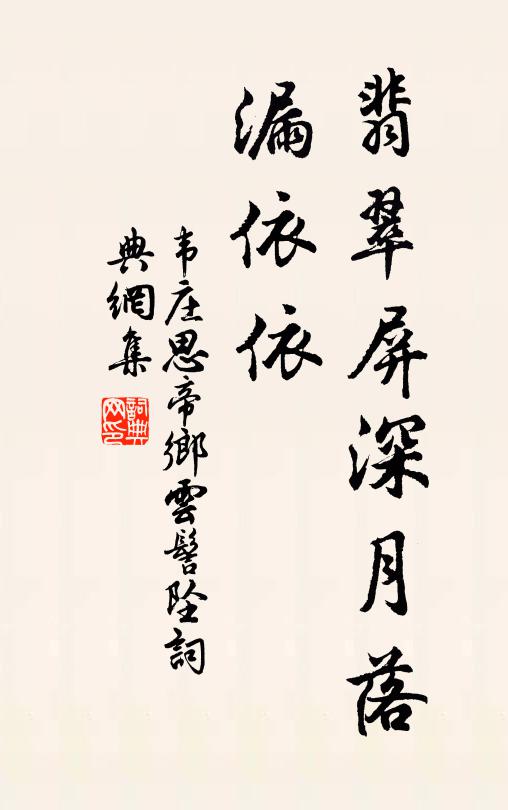 翡翠屏深月落
漏依依
韦庄思帝鄉雲髻坠詞
典網集
詞典網印